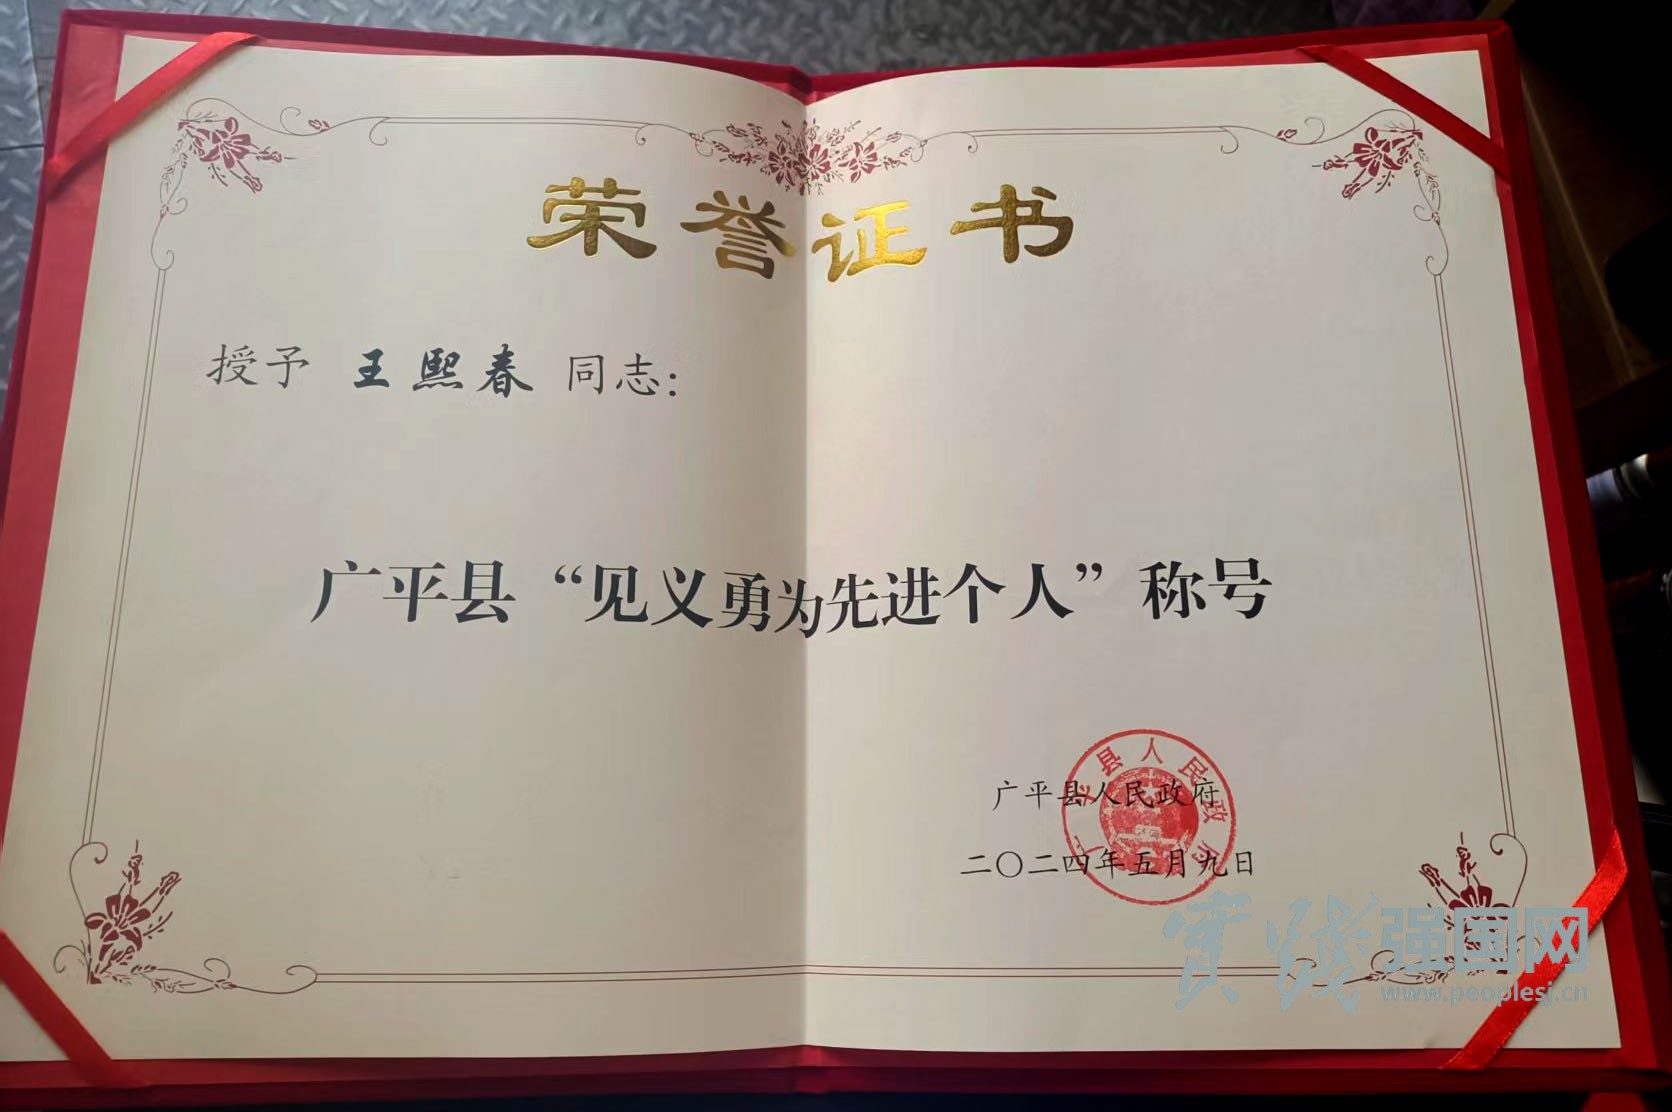 荣誉证书
授予 王熙春 同志：
广平县“见义勇为先进个人”称号
广平县人民政府
二〇二四年五月九日
广平县人民政府
实践强国网
www.peoplesj.cn